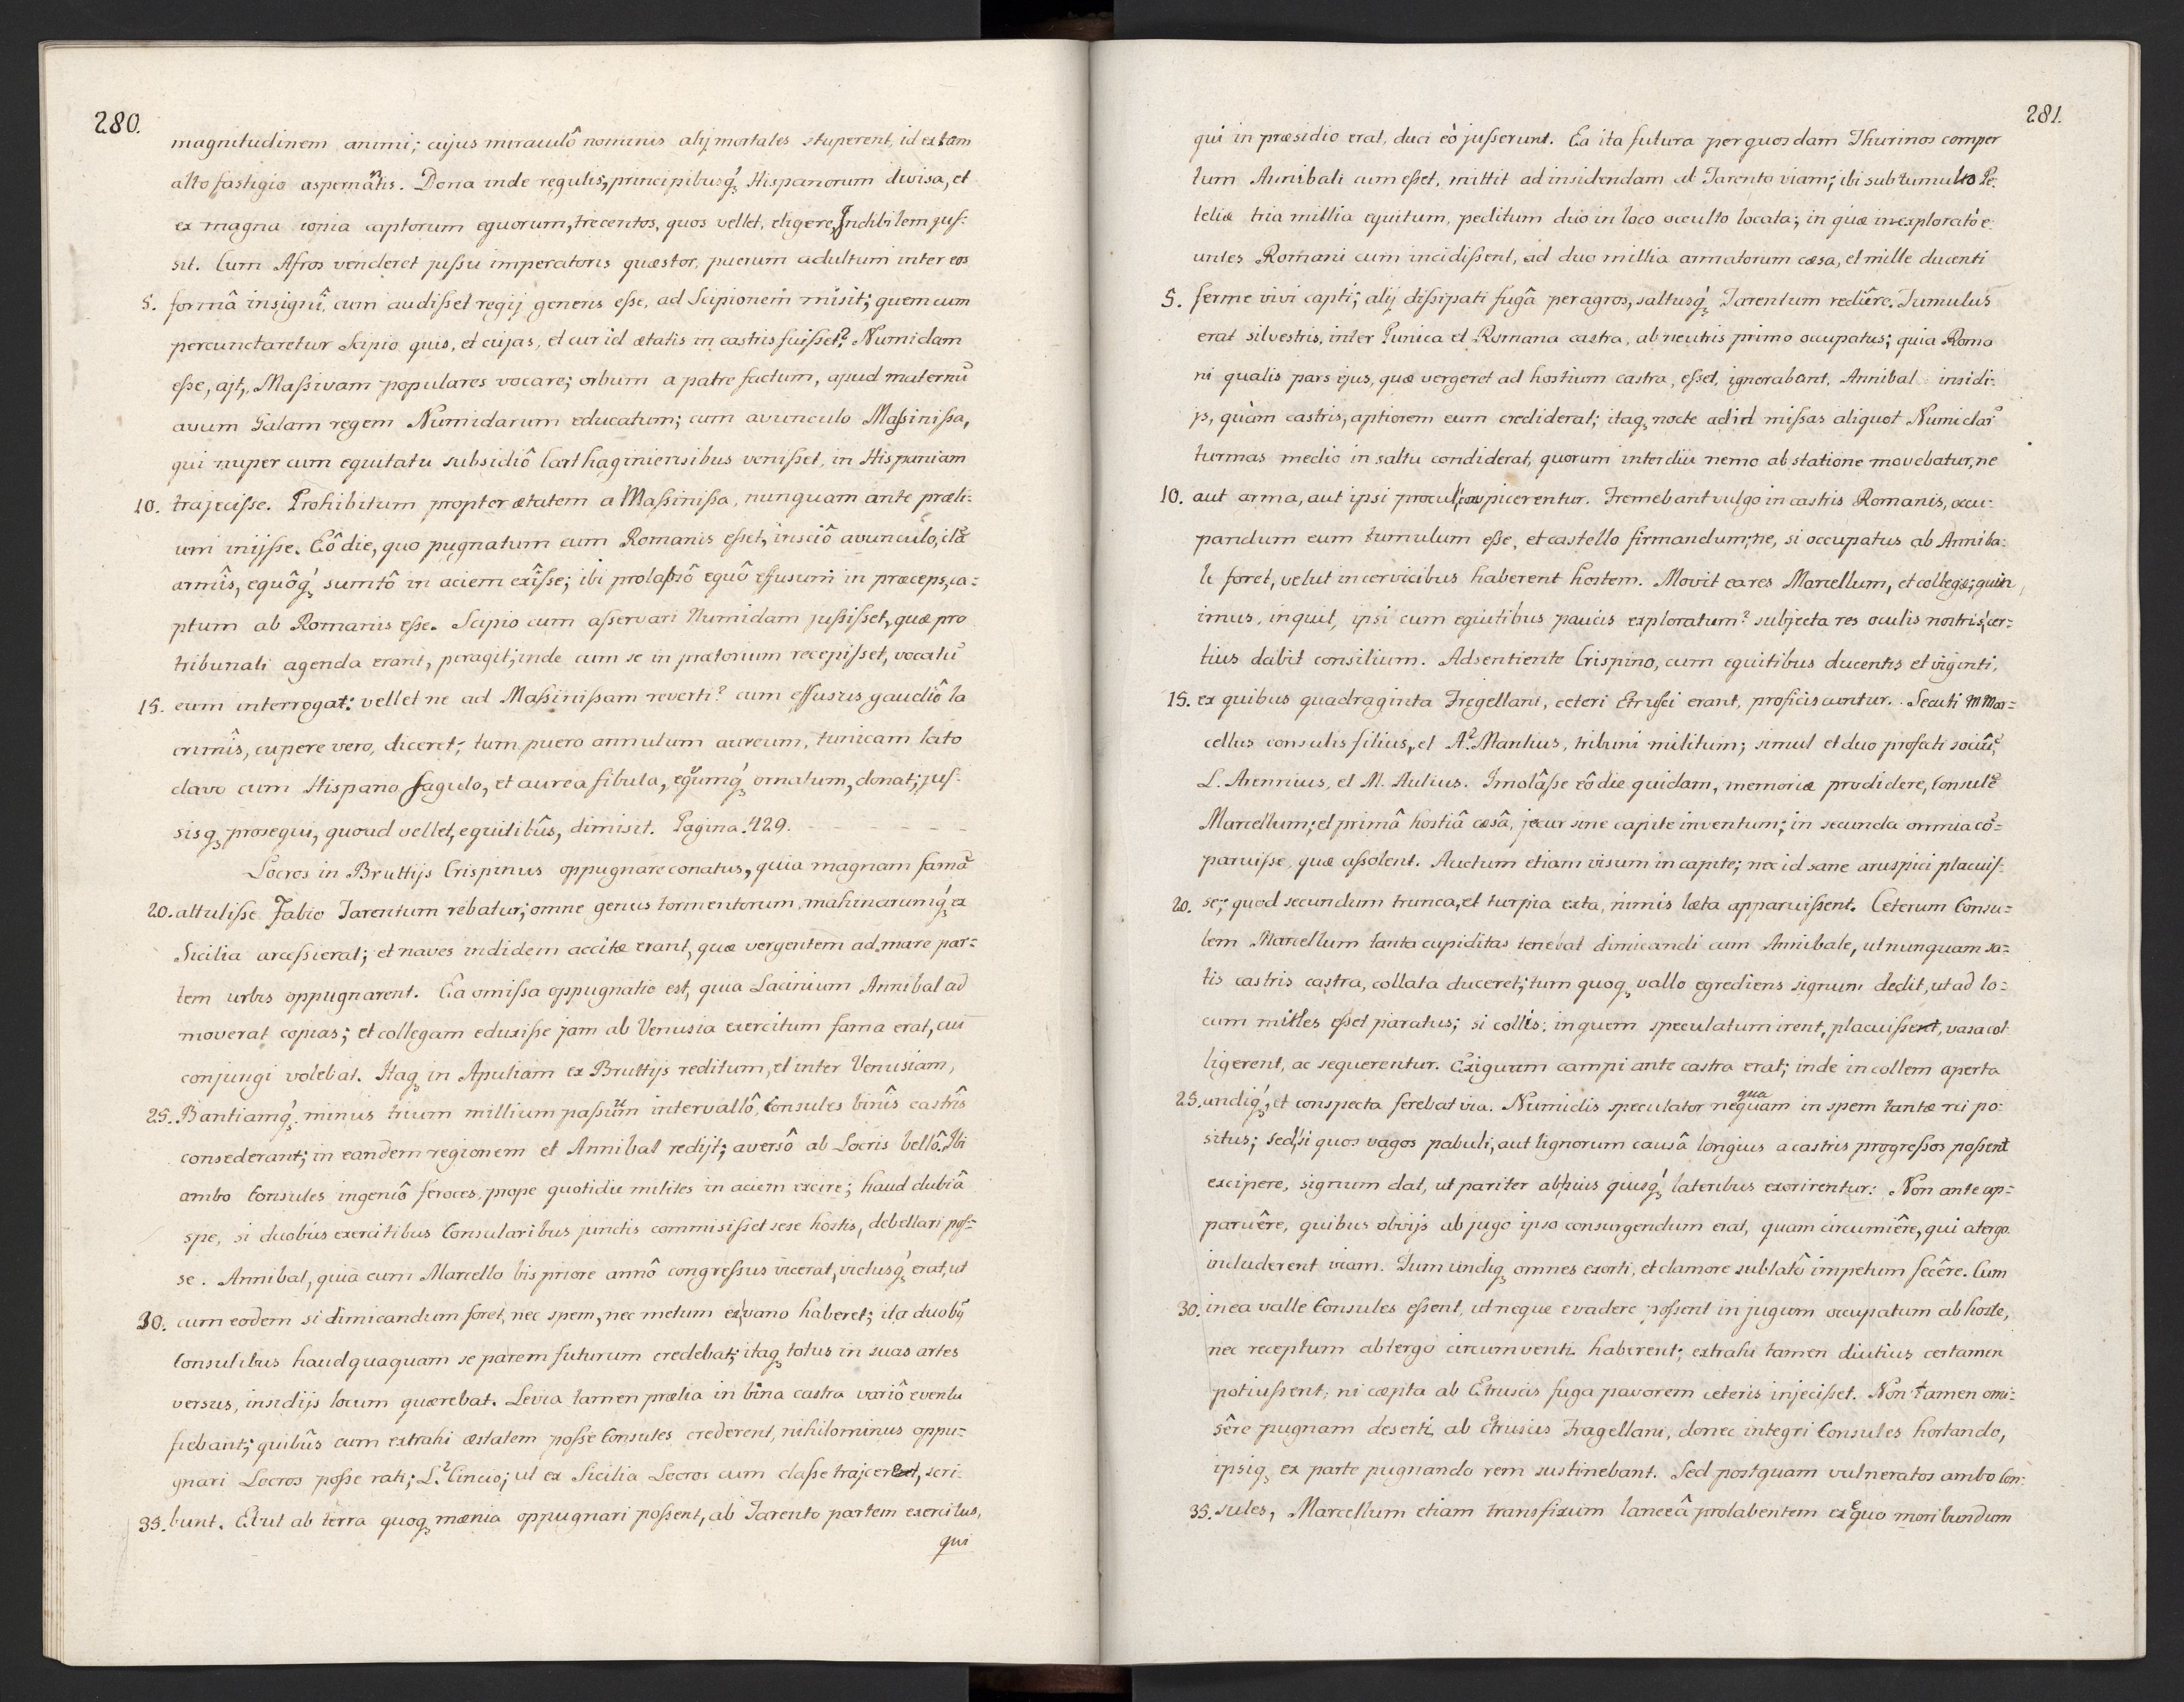 280.
magnitudinem animi; cujus miraculô nominis alij mortales stuperent, id ex tam
alto fastigio aspernantis. Dona inde regulis, principibusq́; Hispanorum divisa, et
ex magna copia captorum equorum, trecentos, quos vellet, eligere Indibilem jus-
sit. Cum Afros venderet jussu imperatoris quæstor, puerum adultum inter eos
5. formâ insigni, cum audisset regij generis esse, ad Scipionem misit; quem cum
percunctaretur Scipio quis, et cujas, et cur id ætatis in castris fuisset? Numidam
esse, ajt, Massivam populares vocare; orbum a patre factum, apud maternū
avum Galam regem Numidarum educatum; cum avunculo Massinissa,
qui nuper cum equitatu subsidiô Carthaginiensibus venisset, in Hispaniam
10. trajecisse. Prohibitum propter ætatem a Massinissa, nunquam ante præli-
um inijsse. Eô die, quo pugnatum cum Romanis esset, insciô avunculo, clā
armîs, equôq́; sumtô in aciem exîsse; ibi prolapsô equô effusum in præceps, ca-
ptum ab Romanis esse. Scipio cum asservari Numidam jussisset, quæ pro
tribunali agenda erant, peragit; inde cum se in prætorium recepisset, vocatū
15. eum interrogat: vellet ne ad Massinissam reverti? cum effusis gaudiô la
crimîs, cupere vero, diceret; tum puero annulum aureum, tunicam lato
clavo cum Hispano sagulo, et aurea fibula, equumq́; ornatum, donat; jus-
sisq; prosequi, quoad vellet, equitibûs, dimisit. Pagina. 429.
Locros in Bruttijs Crispinus oppugnare conatus, quia magnam famā
20. attulisse Fabio Tarentum rebatur; omne genus tormentorum, mahinarumq́; ex
Sicilia arcessierat; et naves indidem accitæ erant, quæ vergentem ad mare par-
tem urbis oppugnarent. Ea omissa oppugnatio est, quia Lacinium Annibal ad
moverat copias; et collegam eduxisse jam ab Venusia exercitum fama erat, cui
conjungi volebat. Itaq; in Apuliam ex Bruttijs reditum, et inter Venusiam,
25. Bantiamq́; minus trium millium passuum intervallô, Consules binîs castrîs
consederant; in eandem regionem et Annibal redijt; aversô ab Locris bellô. Ibi
ambo Consules ingeniô feroces, prope quotidie milites in aciem excire; haud dubiâ
spe, si duobus exercitibus Consularibus junctis commisisset sese hostis, debellari pos-
se. Annibal, quia cum Marcello bis priore annô congressus vicerat, victusq́; erat, ut
30. cum eodem si dimicandum foret, nec spem, nec metum ex vano haberet; ita duobꝰ
Consulibus haudquaquam se parem futurum credebat; itaq; totus in suas artes
versus, insidijs locum quærebat. Levia tamen prælia in bina castra variô eventu
fiebant; quibûs cum extrahi æstatem posse Consules crederent, nihilominus oppu-
gnari Locros posse rati; L. Cincio; ut ex Sicilia Locros cum classe trajceret, scri-
35. bunt. Et ut ab terra quoq; mænia oppugnari possent, ab Tarento partem exercitus,
qui
281.
qui in præsidio erat, duci eò jusserunt. Ea ita futura per quosdam Thurinos comper
tum Annibali cum esset, mittit ad insidendam ab Tarento viam; ibi sub tumulo Pe-
teliæ tria millia equitum, peditum duo in loco occulto locata; in quæ inexploratò e-
untes Romani cum incidissent, ad duo millia armatorum cæsa, et mille ducenti
5. ferme vivi capti; alij dissipati fugâ per agros, saltusq́; Tarentum rediêre. Tumulus
erat silvestris, inter Punica et Romana castra, ab neutris primo occupatus; quia Roma
ni qualis pars ejus, quæ vergeret ad hostium castra, esset, ignorabant. Annibal insidi-
js, quàm castris, aptiorem eum crediderat; itaq; nocte ad id missas aliquot Numidarū
turmas medio in saltu condiderat, quorum interdiu nemo ab statione movebatur, ne
10. aut arma, aut ipsi procul conspicerentur. Fremebant vulgo in castris Romanis, occu-
pandum eum tumulum esse, et castello firmandum; ne, si occupatus ab Anniba-
le foret, velut in cervicibus haberent hostem. Movit ea res Marcellum, et collegæ; quin
imus, inquit, ipsi cum equitibus paucis exploratum? subjecta res oculis nostris, cer-
tius dabit consilium. Adsentiente Crispino, cum equitibus ducentis et viginti,
15. ex quibus quadraginta Fregellani, ceteri Etrusci erant, proficiscuntur. Secuti M Mar-
cellus consulis filius, et A. Manlius, tribuni militum; simul et duo præfecti sociûm,
L. Arennius, et M. Aulius. Imolâsse eô die quidam, memoriæ prodidere, Consulē
Marcellum; et primâ hostiâ cæsâ, jecur sine capite inventum; in secunda omnia cō-
paruisse quæ assolent. Auctum etiam visum in capite; nec id sane aruspici placuis-
20. se; quod secundum trunca, et turpia exta, nimis læta apparuissent. Ceterum Consu-
lem Marcellum tanta cupiditas tenebat dimicandi cum Annibale, ut nunquam sa-
tis castris castra, collata duceret; tum quoq; vallo egrediens signum dedit, ut ad lo-
cum miles esset paratus; si collis, in quem speculatum irent, placuisset, vasa col-
ligerent, ac sequerentur. Exiguum campi ante castra erat; inde in collem aperta
25. undiq́;, et conspecta ferebat via. Numidis speculator nequaquam in spem tantæ rei po-
situs; sed, si quos vagos pabuli, aut lignorum causâ longius a castris progressos possent
excipere, signum dat, ut pariter ab suis quisq́; lateribus exorirentur: Non ante ap-
paruêre, quibus obvijs ab jugo ipso consurgendum erat, quam circumiêre, qui a tergo
includerent viam. Tum undiq; omnes exorti, et clamore sublatô impetum fecêre. Cum
30. in ea valle Consules essent, ut neque evadere possent in jugum occupatum ab hoste,
nec receptum ab tergo circumventi haberent; extrahi tamen diutius certamen
potuissent, ni cæpta ab Etruscis fuga pavorem ceteris injecisset. Non tamen omi-
sêre pugnam deserti ab Etruscis Fragellani, donec integri Consules hortando,
ipsiq; ex parte pugnando rem sustinebant. Sed postquam vulneratos ambo Con-
35. sules, Marcellum etiam transfixum lanceâ prolabentem ex equo moribundum